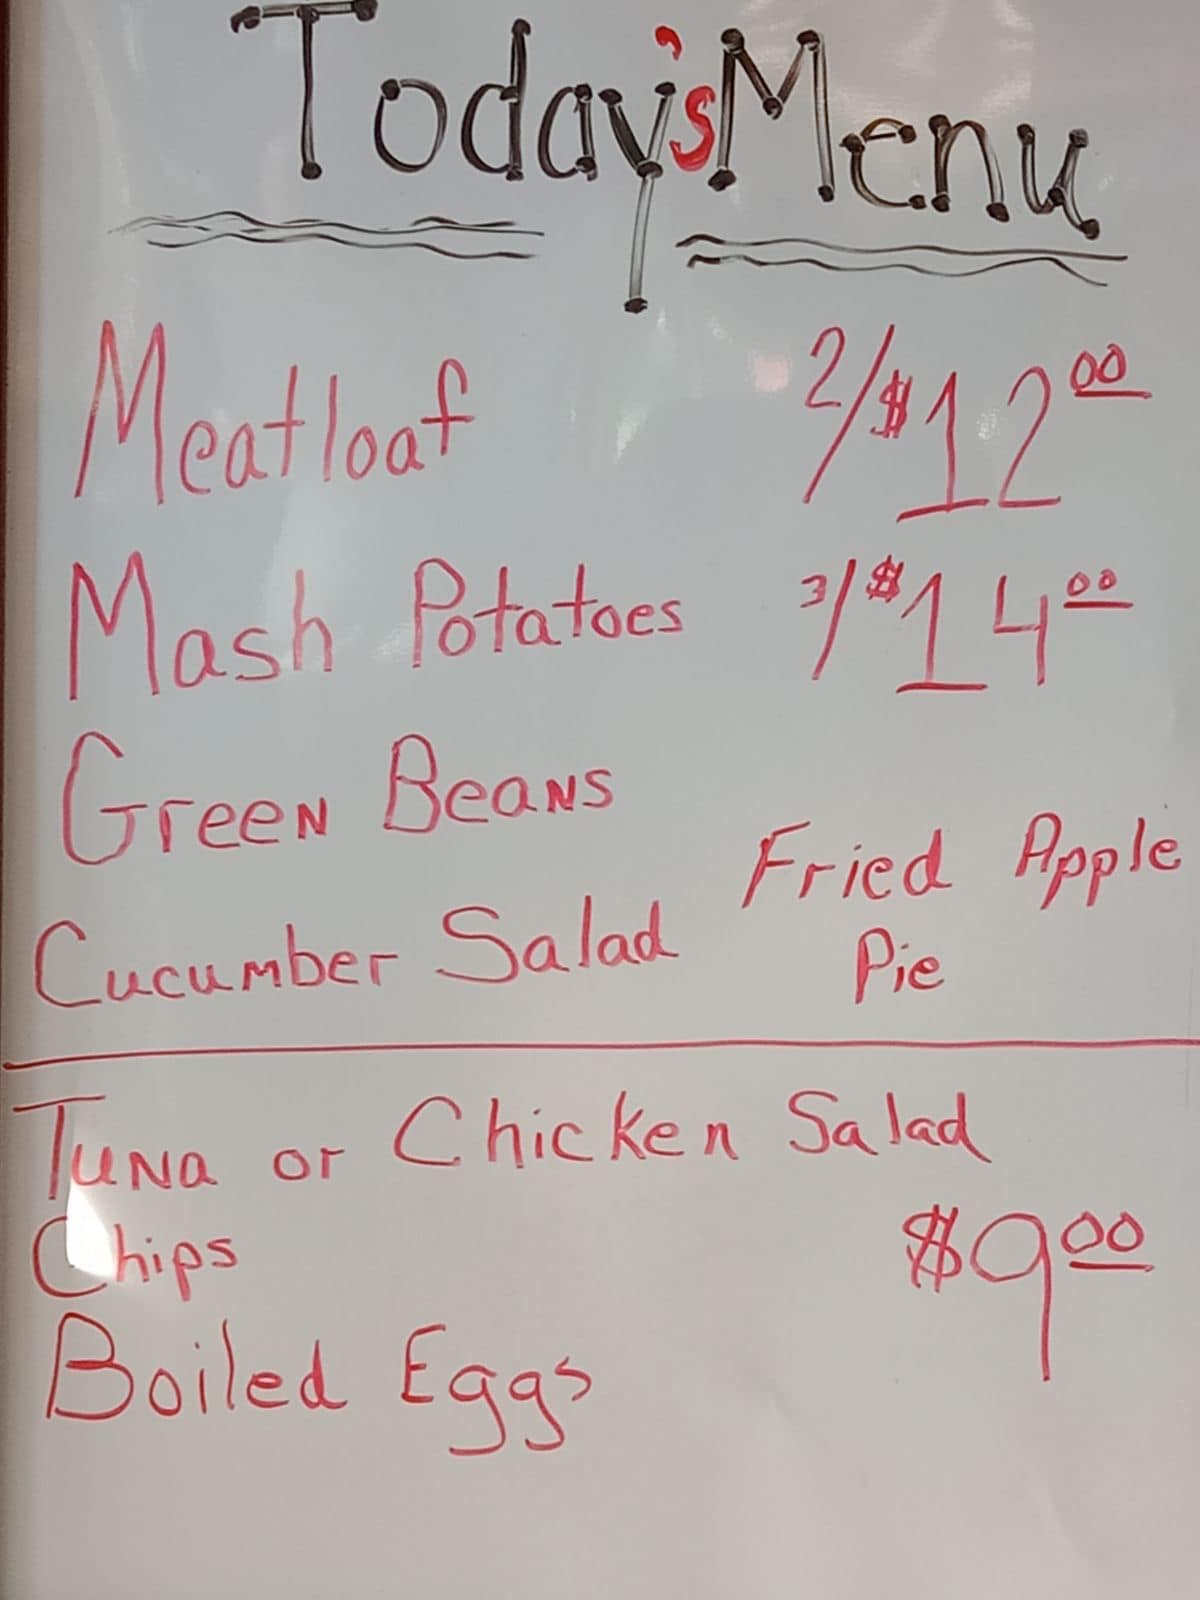 Today's Menu
Meatloaf 2/$12.00
Mash Potatoes 3/$14.00
Green Beans
Fried Apple
Cucumber Salad
Pie
Tuna or Chicken Salad
Chips $9.00
Boiled Eggs